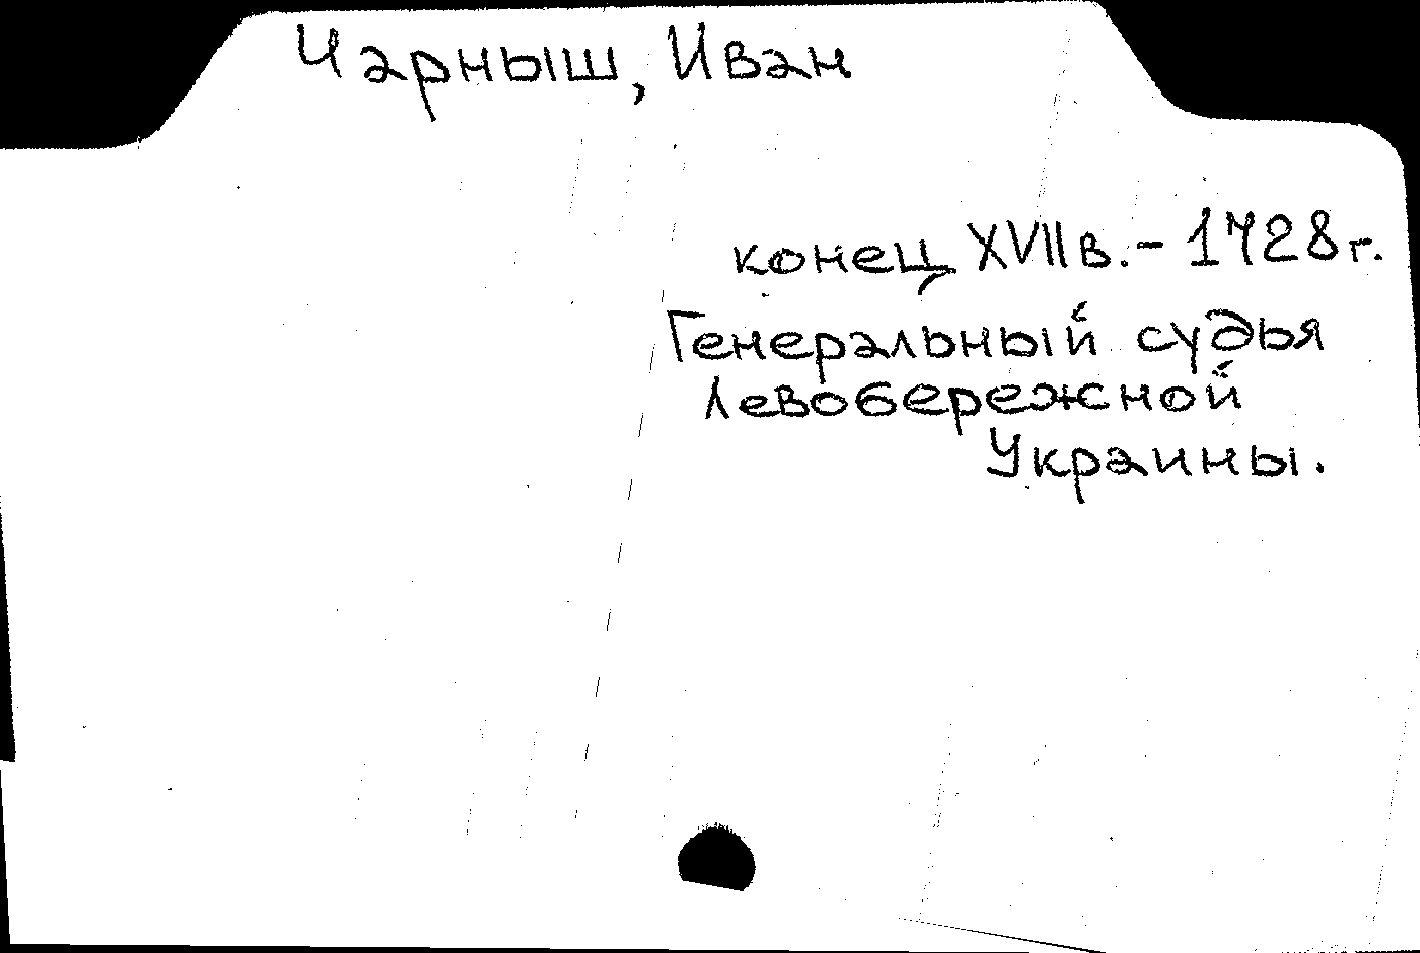 Чарныш, Иван
конец XVII в. - 1728 г.
Генеральный судья
Левобережной
Украины.